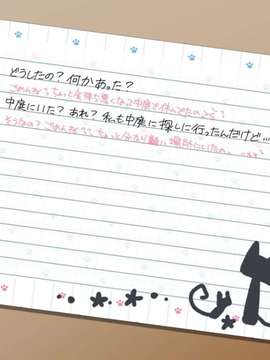 どうしたの？何かあった？
ごめんね？ちょっと気持ち悪くなって中庭で休んでたの
中庭にいた？あれ？私も中庭に探しに行ったんだけど…
そうなの？ごめんね？ちょっと分かり難い場所にいたの